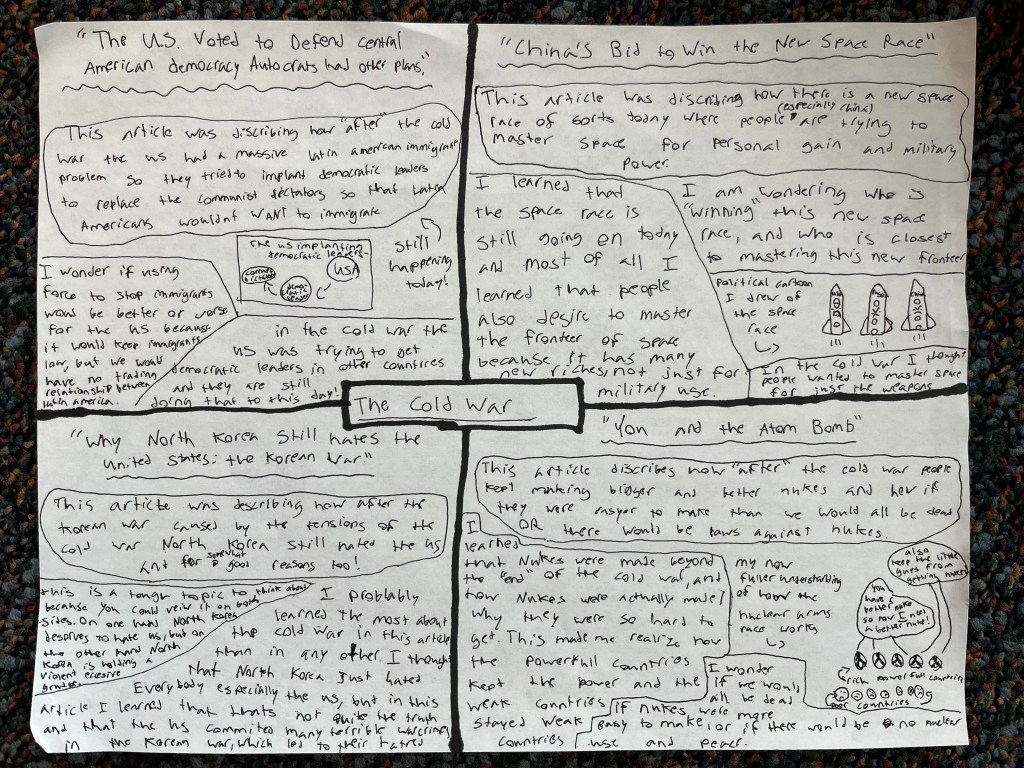 "The U.S. Voted to Defend central
American democracy Autocrats had other plans."
This article was discribing how "after" the cold
war the us had a massive latin american immigrant
problem so they tried to implant democratic leaders
to replace the communist dictators so that Latin
Americans wouldnt WANT to immigrate
still
happening
today!
The US implanting
democratic leaders-
USA
I wonder if using
force to stop immigrants
would be better or worse
for the US because
it would keep immigrants
low, but we would
have no trading
relationship between
latin america.
in the cold war the
us was trying to get
democratic leaders in other countries
and they are still
doing that to this day!
"China's Bid to Win the New Space Race"
This article was discribing how there is a new space
race of sorts today where people (especially china) are trying to
master space for personal gain and military
power.
I learned that
the space race is
still going on today
and most of all I
learned that people
also desire to master
the fronteer of space
because it has many
new riches, not just for
military use.
I am wondering who is
"winning" this new space
race, and who is closest
to mastering this new fronteer
political cartoon
I drew of
the space
race
In the cold war I thought
people wanted to master space
for just the weapons
The Cold War
"Why North Korea still hates the
United States: the Korean War"
This article was describing how after the
Korean war caused by the tensions of the
cold war North Korea still hated the US
and for somewhat good reasons too!
this is a tough topic to think about
because you could veiw it on both
sides. On one hand North Korea
deserves to hate us, but on
the other hand North
Korea is holding a
violent excesive
grudge
I problably
learned the most about
the cold war in this article
than in any other. I thought
that North Korea Just hated
Everybody especially the us, but in this
article I learned that thats not quite the truth
and that the US commited many terrible warcrimes
in the Korean war, which led to their hatred
"You and the Atom Bomb"
This article discribes how "after" the cold war people
kept making bigger and better nukes and how if
they were easyer to make than we would all be dead
OR there would be laws against nukes.
I
learned
that Nukes were made beyond
the "end" of the cold war, and
how Nukes were actually made/
why they were so hard to
get. This made me realize how
the powerfull countries
kept the power and the
weak countries
stayed weak
countries
my now
fuller understanding
of how the
nuclear arms
race works
also
keep the little
guys from
getting nukes
You
have a
better nuke
so now I need
a better nuke!
rich powerfull countries
poor countries
I wonder
if we would
all be dead
if nukes were more
easy to make, or if there would be no nuclear
use and peace.